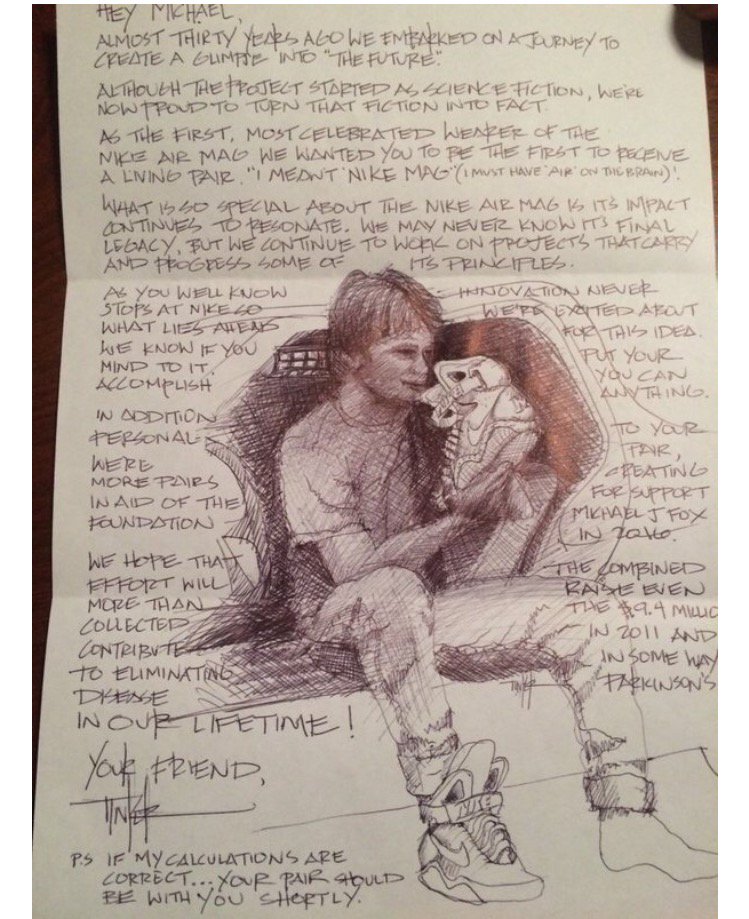 HEY MICHAEL,
ALMOST THIRTY YEARS AGO WE EMBARKED ON A JOURNEY TO
CREATE A GLIMPSE INTO "THE FUTURE".
ALTHOUGH THE PROJECT STARTED AS SCIENCE FICTION, WE'RE
NOW PROUD TO TURN THAT FICTION INTO FACT.
AS THE FIRST, MOST CELEBRATED WEARER OF THE
NIKE AIR MAG WE WANTED YOU TO BE THE FIRST TO RECEIVE
A LIVING PAIR. "I MEANT 'NIKE MAG'" (I MUST HAVE 'AIR' ON THE BRAIN)!
WHAT IS SO SPECIAL ABOUT THE NIKE AIR MAG IS ITS IMPACT
CONTINUES TO RESONATE. WE MAY NEVER KNOW ITS FINAL
LEGACY, BUT WE CONTINUE TO WORK ON PROJECTS THAT CARRY
AND PROGRESS SOME OF ITS PRINCIPLES.
AS YOU WELL KNOW INNOVATION NEVER
STOPS AT NIKE SO WE'RE EXCITED ABOUT
WHAT LIES AHEAD FOR THIS IDEA.
WE KNOW IF YOU PUT YOUR
MIND TO IT, YOU CAN
ACCOMPLISH ANYTHING.
IN ADDITION TO YOUR
PERSONAL PAIR,
WE'RE CREATING
MORE PAIRS FOR SUPPORT
IN AID OF THE MICHAEL J FOX
FOUNDATION IN 2016.
WE HOPE THAT THE COMBINED
EFFORT WILL RAISE EVEN
MORE THAN THE $9.4 MILLIO
COLLECTED IN 2011 AND
CONTRIBUTE IN SOME WAY
TO ELIMINATING PARKINSON'S
TINKER
DISEASE
IN OUR LIFETIME!
YOUR FRIEND,
TINKER
NIKE
P.S IF MY CALCULATIONS ARE
CORRECT... YOUR PAIR SHOULD
BE WITH YOU SHORTLY.